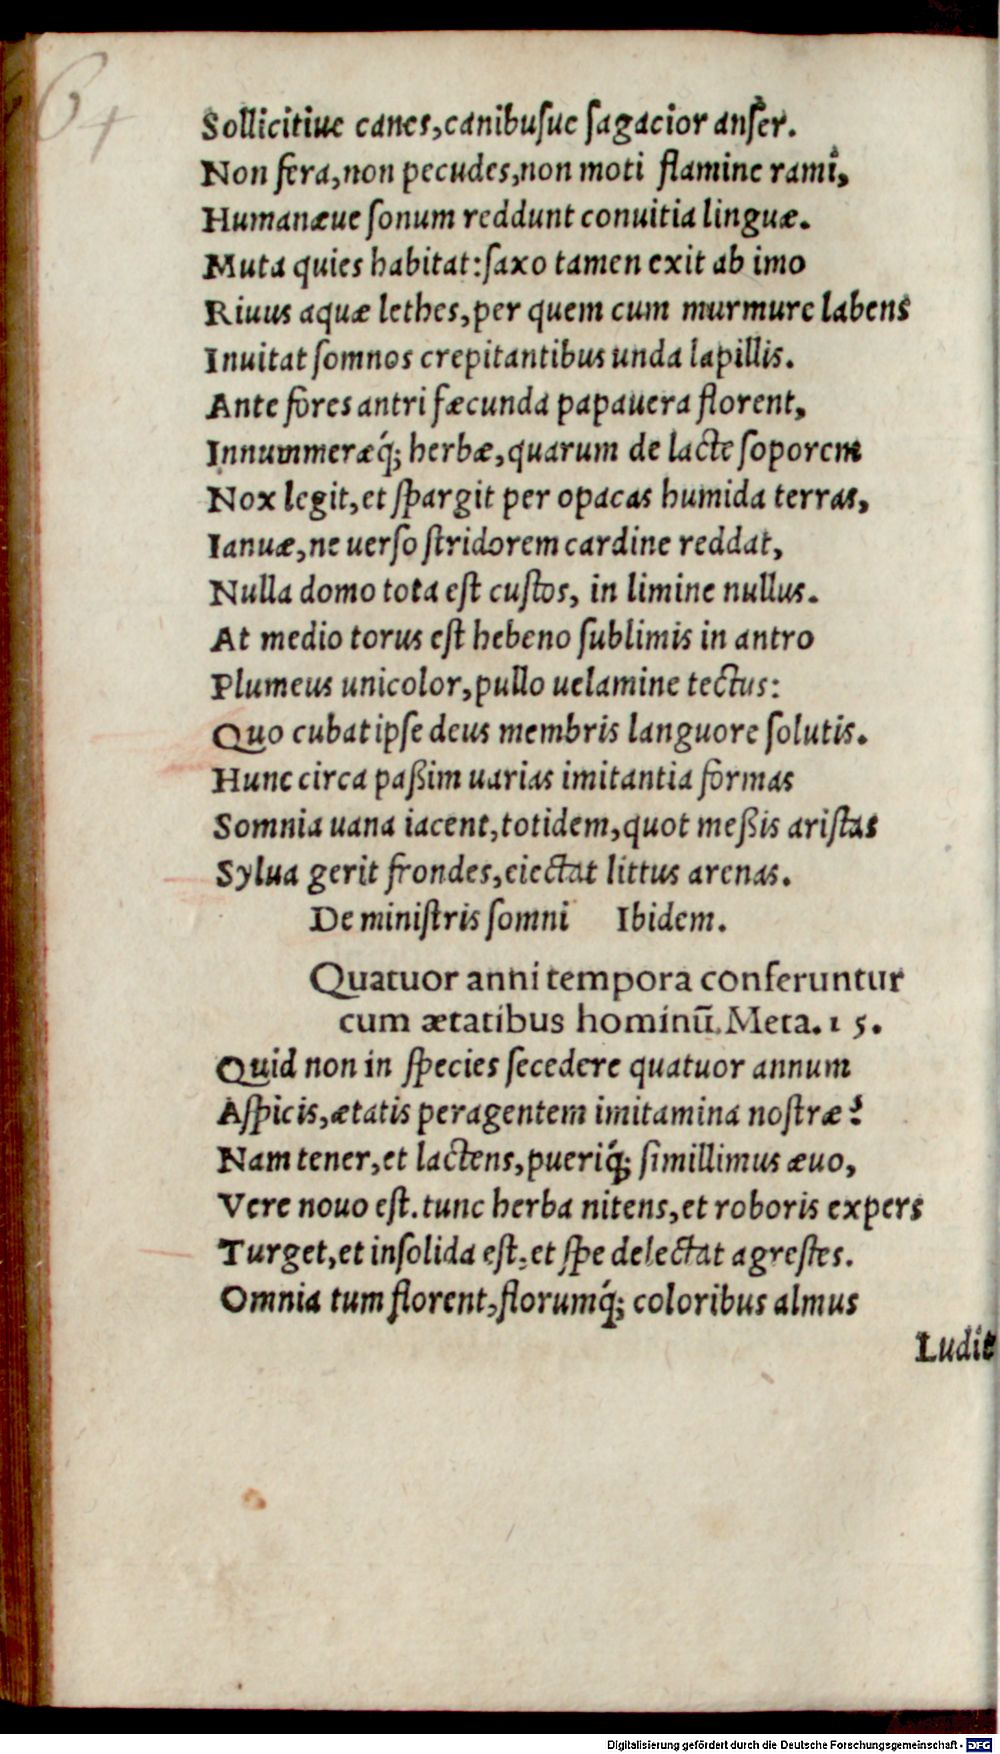 64
Sollicitiue canes,canibusue sagacior anser.
Non fera,non pecudes,non moti flamine rami,
Humanæue sonum reddunt conuitia linguæ.
Muta quies habitat:saxo tamen exit ab imo
Riuus aquæ lethes,per quem cum murmure labens
Inuitat somnos crepitantibus unda lapillis.
Ante fores antri fæcunda papauera florent,
Innummeræq́; herbæ,quarum de lacte soporem
Nox legit,et spargit per opacas humida terras,
Ianuæ,ne uerso stridorem cardine reddat,
Nulla domo tota est custos, in limine nullus.
At medio torus est hebeno sublimis in antro
Plumeus unicolor,pullo uelamine tectus:
Quo cubat ipse deus membris languore solutis.
Hunc circa paßim uarias imitantia formas
Somnia uana iacent,totidem,quot meßis aristas
Sylua gerit frondes,eiectat littus arenas.
De ministris somni Ibidem.
Quatuor anni tempora conferuntur
cum ætatibus hominū.Meta.15.
Quid non in species secedere quatuor annum
Aspicis,ætatis peragentem imitamina nostræ?
Nam tener,et lactens,pueriq́; simillimus æuo,
Vere nouo est.tunc herba nitens,et roboris expers
Turget,et insolida est:et spe delectat agrestes.
Omnia tum florent,florumq́; coloribus almus
Ludit
Digitalisierung gefördert durch die Deutsche Forschungsgemeinschaft - DFG